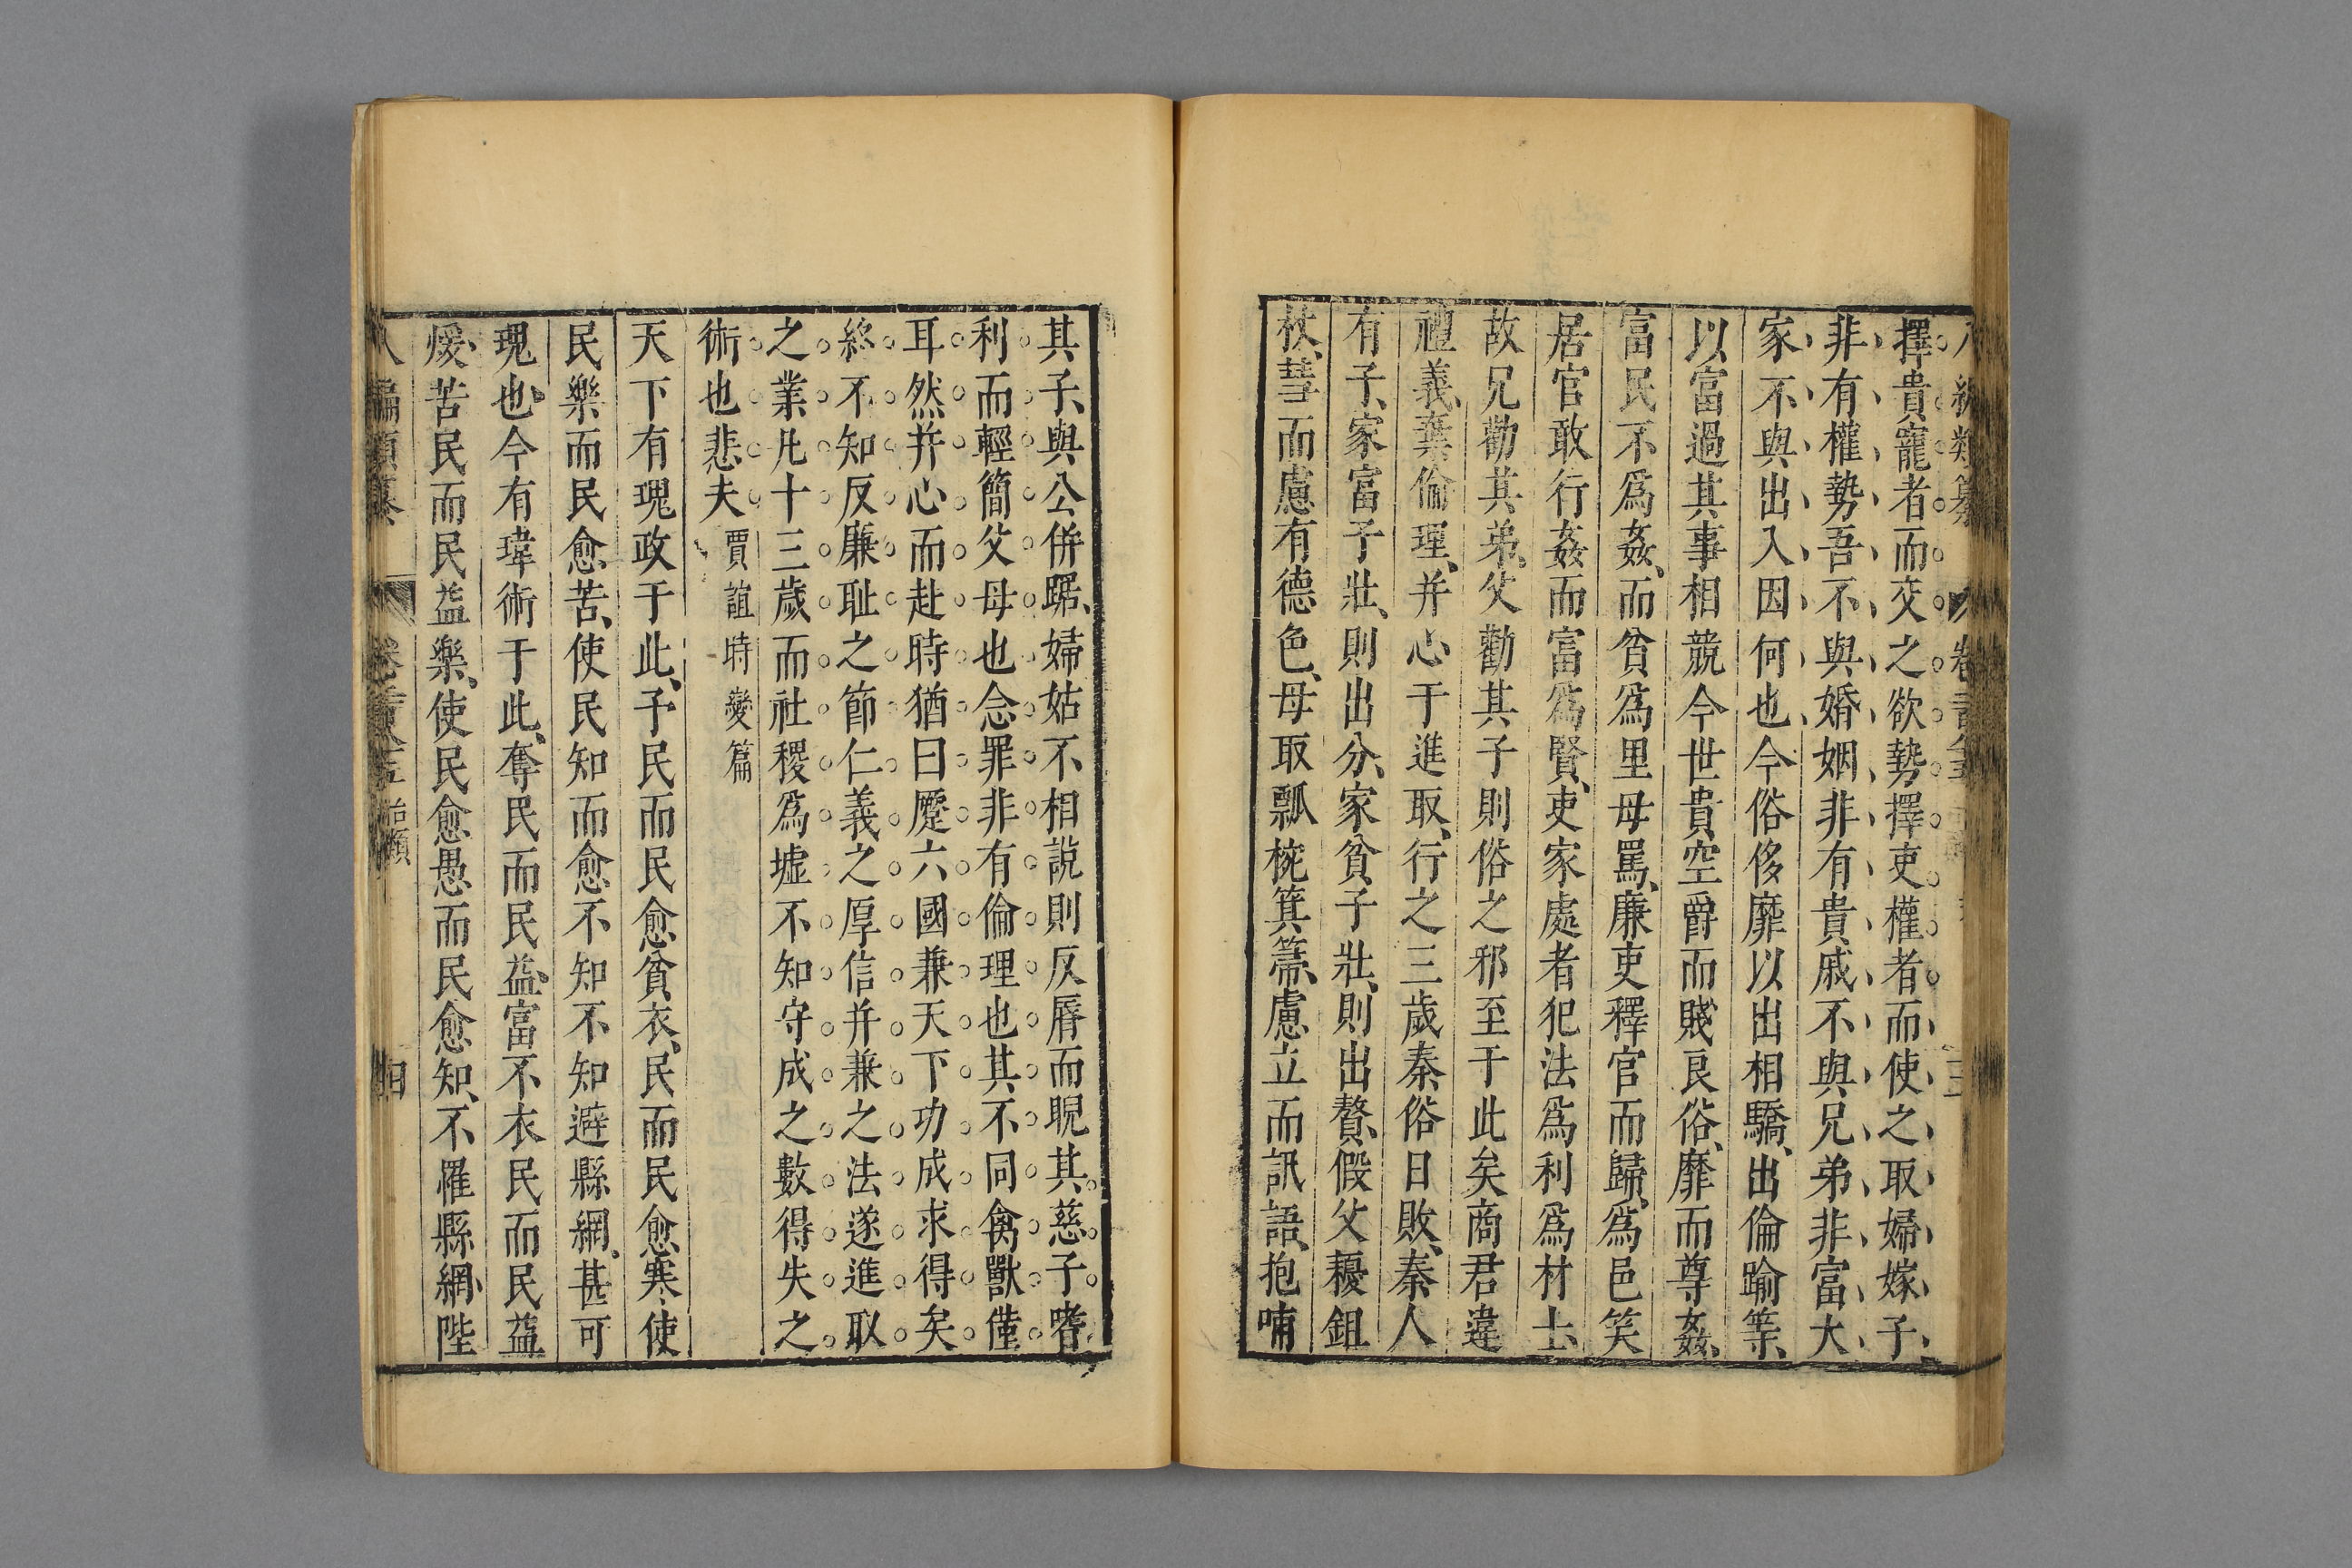 擇貴寵者而交之欲勢擇吏權者而使之取婦嫁子
非有權勢吾不與婚姻非有貴戚不與兄弟非富大
家不與出入因何也今俗侈靡以出相驕出倫踰等
以富過其事相競今世貴空爵而賤良俗靡而尊姦
富民不爲姦而貧爲里母罵廉吏釋官而歸爲邑笑
居官敢行姦而富爲賢吏家處者犯法爲利爲材士
故兄勸其弟父勸其子則俗之邪至于此矣商君違
禮義棄倫理并心于進取行之三歲秦俗日敗秦人
有子家富子壯則出分家貧子壯則出贅假父耰鉏
杖彗而慮有德色母取瓢椀箕箒慮立而訊語抱哺
其子與公併踞婦姑不相說則反脣而睨其慈子嗜
利而輕簡父母也念罪非有倫理也其不同禽獸僅
耳然并心而赴時猶曰蹷六國兼天下功成求得矣
終不知反廉耻之節仁義之厚信并兼之法遂進取
之業凡十三歲而社稷爲墟不知守成之數得失之
術也悲夫 賈誼時變篇
天下有瑰政于此予民而民愈貧衣民而民愈寒使
民樂而民愈苦使民知而愈不知不知避縣網甚可
瑰也今有瑋術于此奪民而民益富不衣民而民益
煖苦民而民益樂使民愈愚而民愈知不罹縣網陛
八編類纂 治類 四